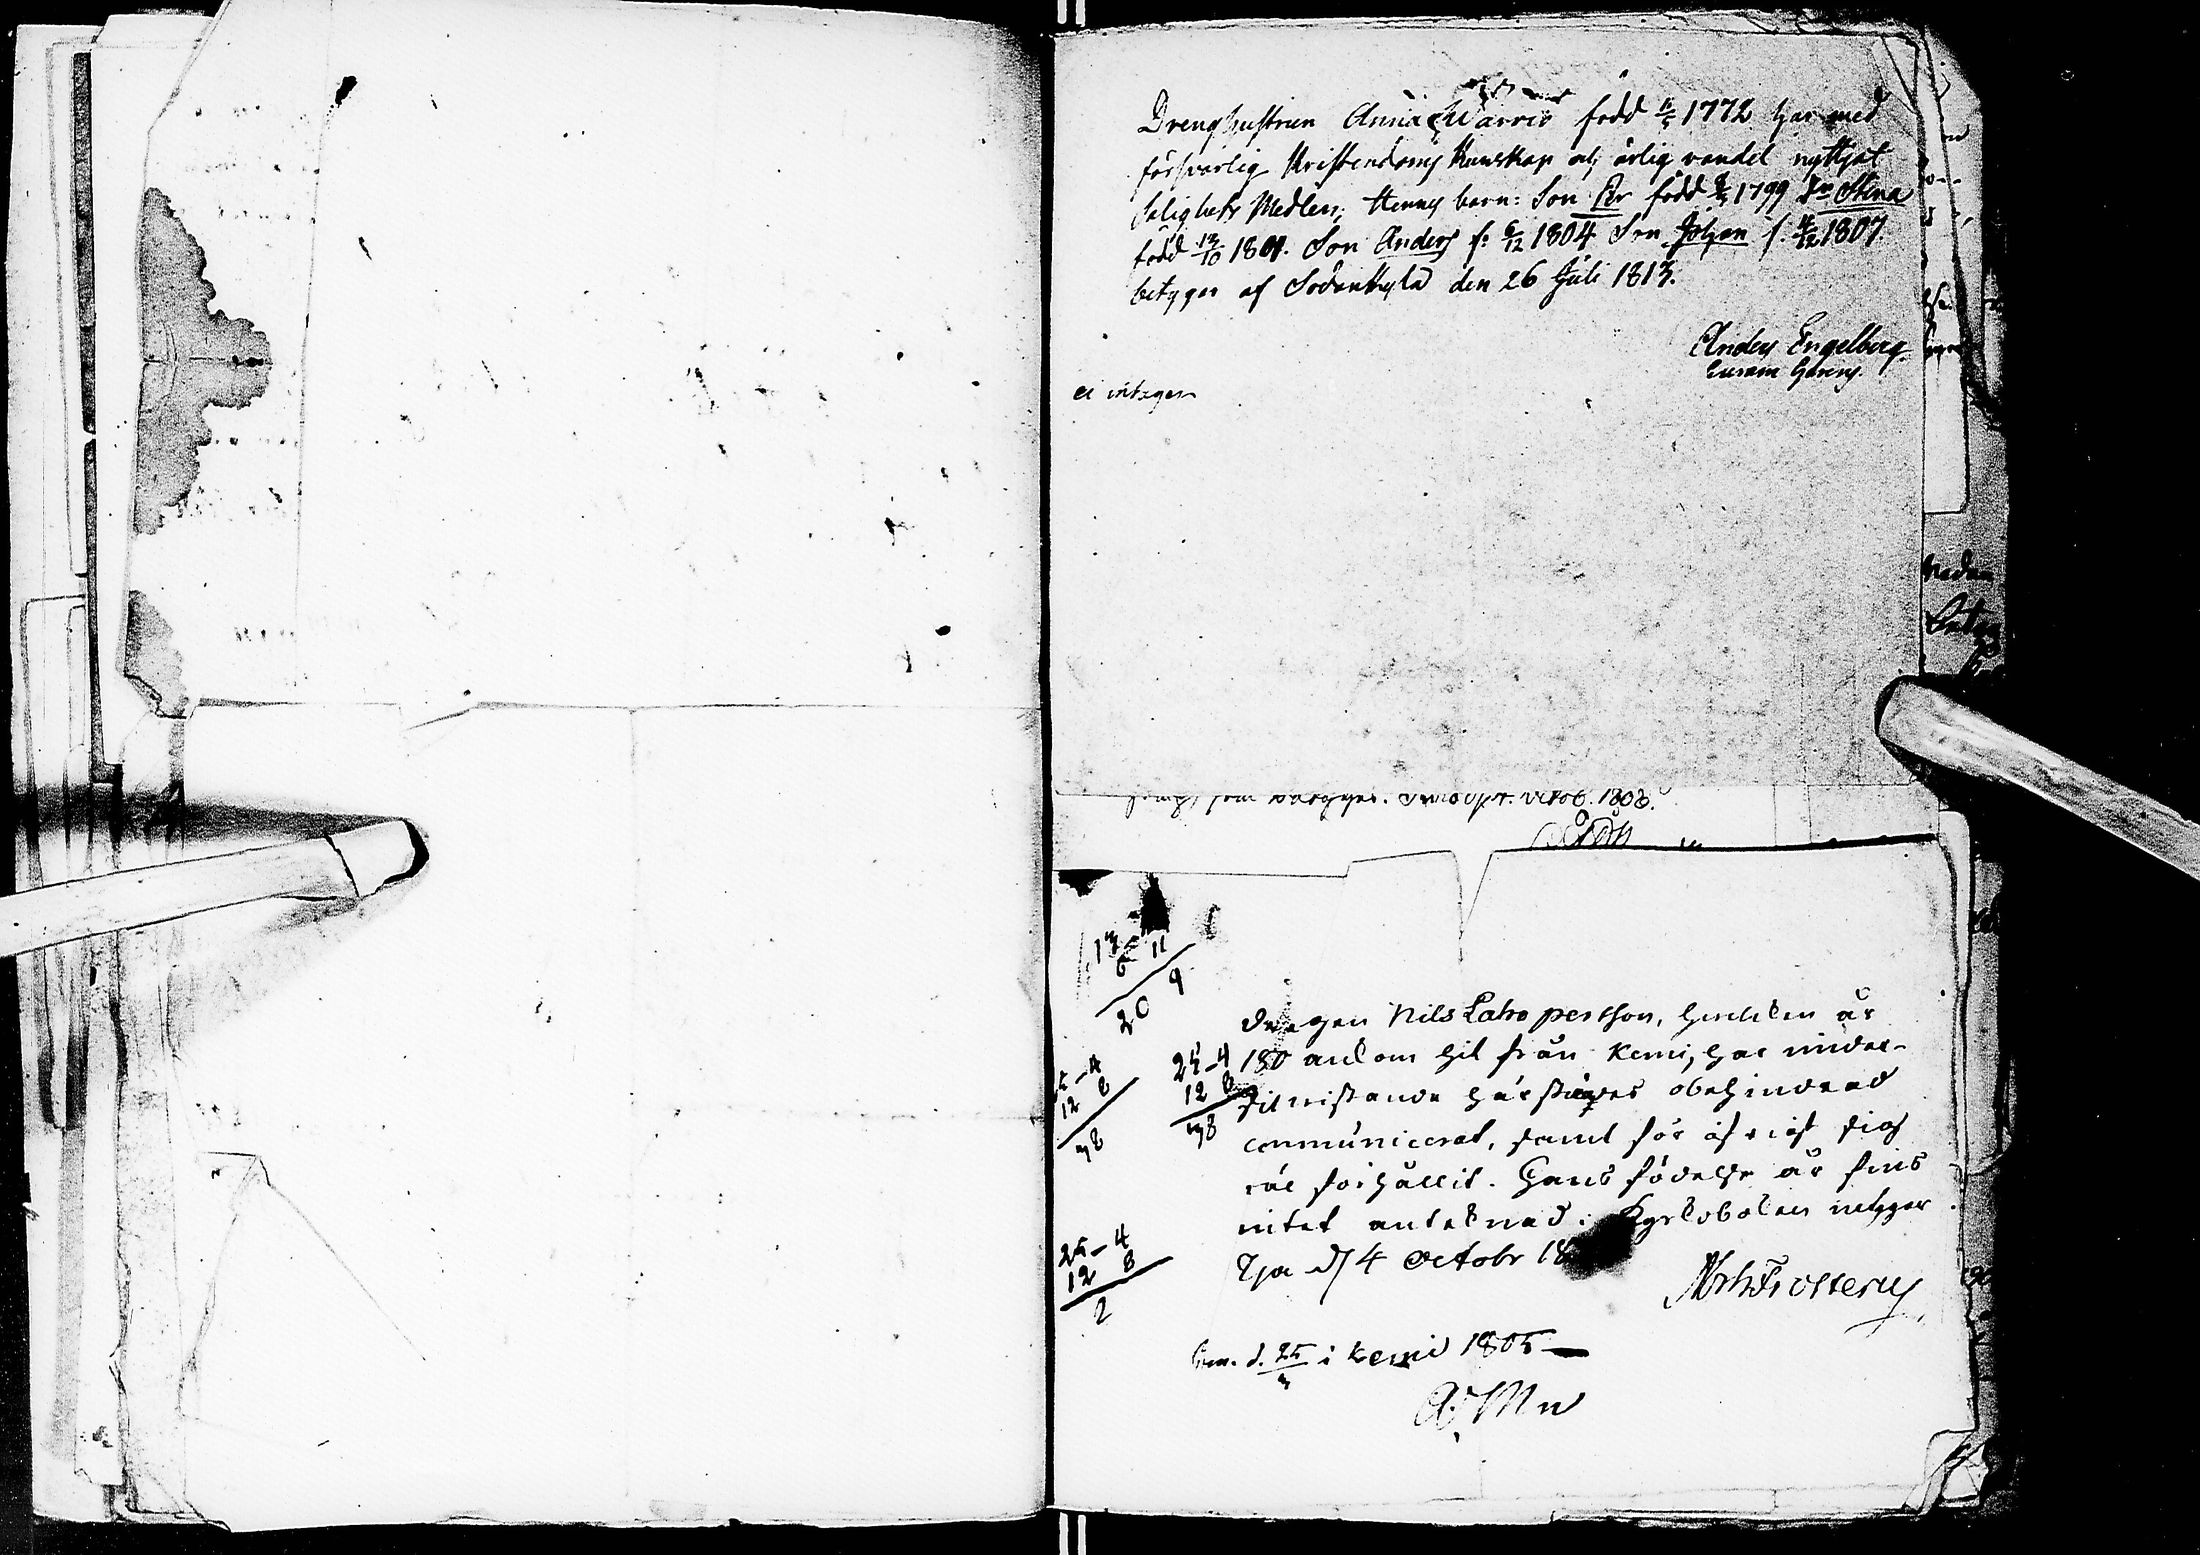 Drenghustrun Anna Warrio född 11/5 1772 har med
försvarlig Kristendoms Kunskap och ärlig vandel nyttjat
Salighets Medlen; Hennes barn: Son Per född 1799 Dr Stina
född 13/10 1801. Son Anders f: 6/12 1804 Son Johan f. 4/12 1807.
betygar af Sodankylä den 26 Juli 1813.
Anders Engelberg
ei integer
som 1808.
13 11
6
20 9
Drengen Nils Laho persson, hvilken år
180 ankom hit från Kemi, har under
obehindrad
communicerat, samt för öfrigt sig
väl förhållit. Hans födelse år fins
intet anteknad. Kyrkoboken intygar
d/ 4 Octobr 18
25-4
12 8
25-4
12 8
38
25-4
12 8
2
d. 25/3 i Kemi 1805